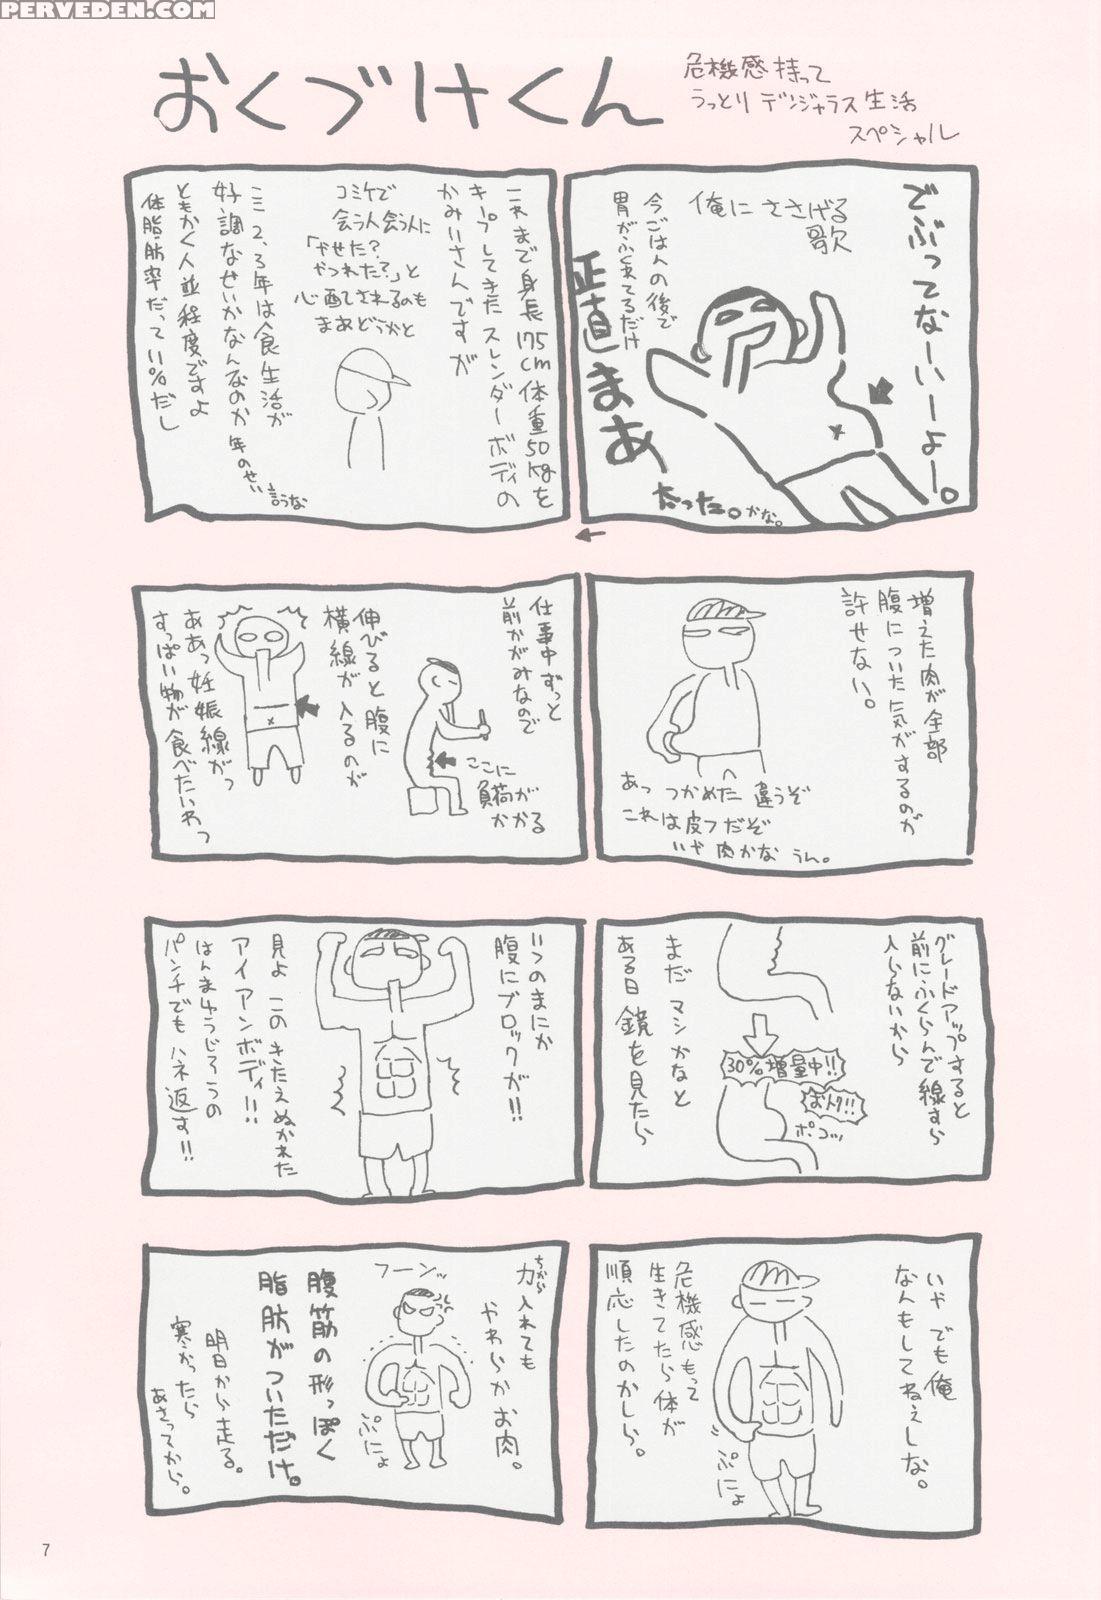 PERVEDEN.COM
おくづけくん
危機感持って
うっとりデンジャラス生活
スペシャル
でぶってなーいーよー。
俺にささげる
歌
今ごはんの後で
胃がふくれてるだけ
正直まあ
太った。かな。
これまで身長175cm体重50kgを
キープしてきたスレンダーボディの
かみいさんですが
コミケで
会う人会う人に
「やせた?
やつれた?」と
心配されるのも
まあどうかと
ここ2,3年は食生活が
好調なせいかなんなのか年のせい
言うな
ともかく人並程度ですよ
体脂肪率だって11%だし
増えた肉が全部
腹についた気がするのが
許せない。
あっつかめた違うぞ
これは皮フだぞ
いや肉かなうん。
仕事中ずっと
前かがみなので
ここに
負荷が
かかる
伸びると腹に
横線が入るのが
ああっ妊娠線がっ
すっぱい物が食べたいわっ
グレードアップすると
前にふくらんで線すら
入らないから
30%増量中!!
おトク!!
ポコッ
まだマシかなと
ある日鏡を見たら
いつのまにか
腹にブロックが!!
見よこのきたえぬかれた
アイアンボディ!!
はんまゆうじろうの
パンチでもハネ返す!!
いやでも俺
なんもしてねぇしな。
ぷにょ
危機感もって
生きてたら体が
順応したのかしら。
ちから
力入れても
やわらかお肉。
フーンッ
ぷにょ
腹筋の形っぽく
脂肪がついただけ。
明日から走る。
寒かったら
あさってから。
7